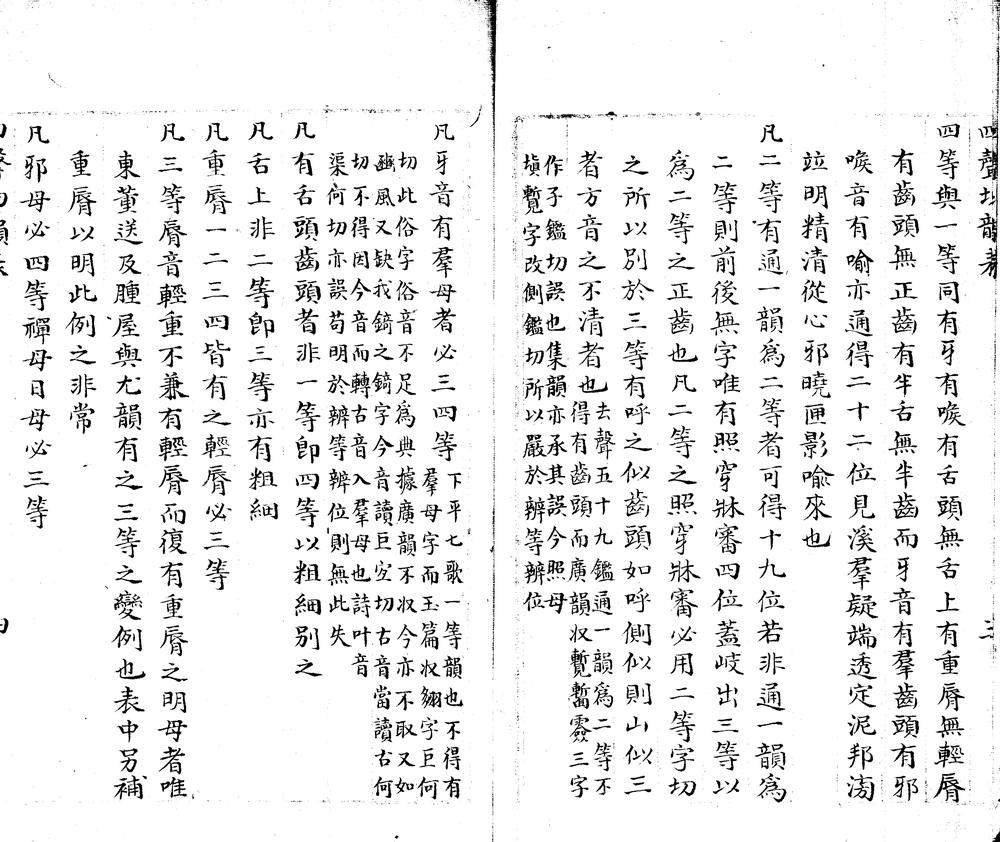 四聲切韻表
四等與一等同有牙有喉有舌頭無舌上有重脣無輕脣
有齒頭無正齒有半舌無半齒而牙音有羣齒頭有邪
喉音有喻亦通得二十二位見溪羣疑端透定泥邦滂
竝明精清從心邪曉匣影喻來也
凡二等有通一韻爲二等者可得十九位若非通一韻爲
二等則前後無字唯有照穿牀審四位蓋岐出三等以
爲二等之正齒也凡二等之照穿牀審必用二等字切
之所以別於三等有呼之似齒頭如呼側似則山似三
者方音之不清者也
去聲五十九鑑通一韻爲二等不
得有齒頭而廣韻收覱暫䨛三字
作子鑑切誤也集韻亦承其誤今照母
塡覱字改側鑑切所以嚴於辨等辨位
凡牙音有羣母者必三四等
下平七歌一等韻也不得有
羣母字而玉篇收翗字巨何
切此俗字俗音不足爲典據廣韻不收今亦不取又如
豳風又缺我錡之錡字今音讀巨宐切古音當讀古何
切不得因今音而轉古音入羣母也詩叶音
渠何切亦誤苟明於辨等辨位則無此失
凡有舌頭齒頭者非一等卽四等以粗細別之
凡舌上非二等卽三等亦有粗細
凡重脣一二三四皆有之輕脣必三等
凡三等脣音輕重不兼有輕脣而復有重脣之明母者唯
東董送及腫屋與尤韻有之三等之變例也表中另補
重脣以明此例之非常
凡邪母必四等禪母日母必三等